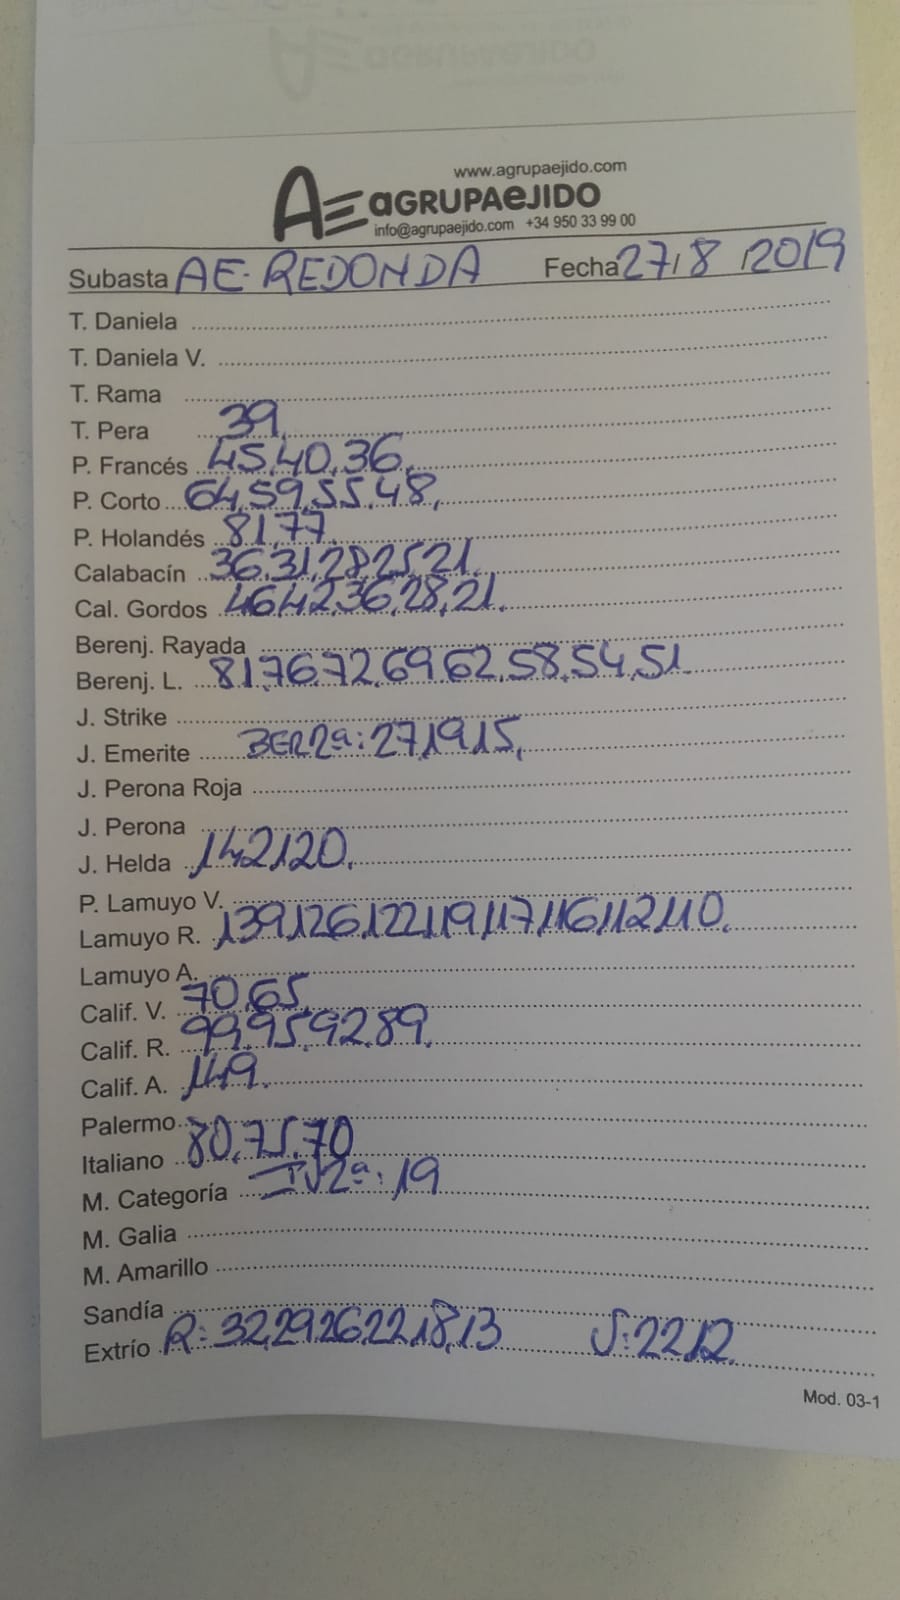 www.agrupaejido.com
AE aGRUPAeJIDO
info@agrupaejido.com +34 950 33 99 00
Subasta AE-REDONDA Fecha 27/8/2019
T. Daniela
T. Daniela V.
T. Rama
T. Pera 39,
P. Francés 45,40,36,
P. Corto 64,59,55,48,
P. Holandés 81,77,
Calabacín 36,31,28,25,21.
Cal. Gordos 46,42,36,28,21.
Berenj. Rayada
Berenj. L. 81,76,72,69,62,58,54,51.
J. Strike
J. Emerite BER2ª: 27,19,15,
J. Perona Roja
J. Perona
J. Helda 142,120.
P. Lamuyo V.
Lamuyo R. 139,126,122,119,117,116,112,110.
Lamuyo A.
Calif. V. 70,65,
Calif. R. 99,95,92,89,
Calif. A. 149.
Palermo
Italiano 80,75,70
M. Categoría IV2ª: 19
M. Galia
M. Amarillo
Sandía
Extrío R: 32,29,26,22,18,13 V: 22,12.
Mod. 03-1